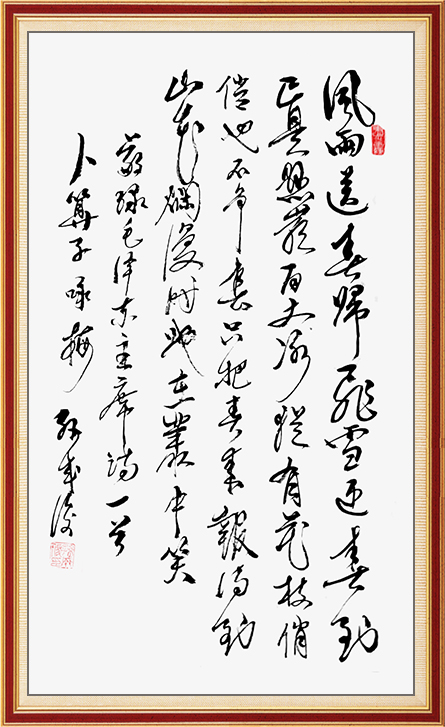 風雨送春歸飛雪迎春到
已是懸崖百丈冰猶有花枝俏
俏也不争春只把春來報待到
山花爛漫時她在叢中笑
敬録毛泽东主席詞一首
卜算子咏梅